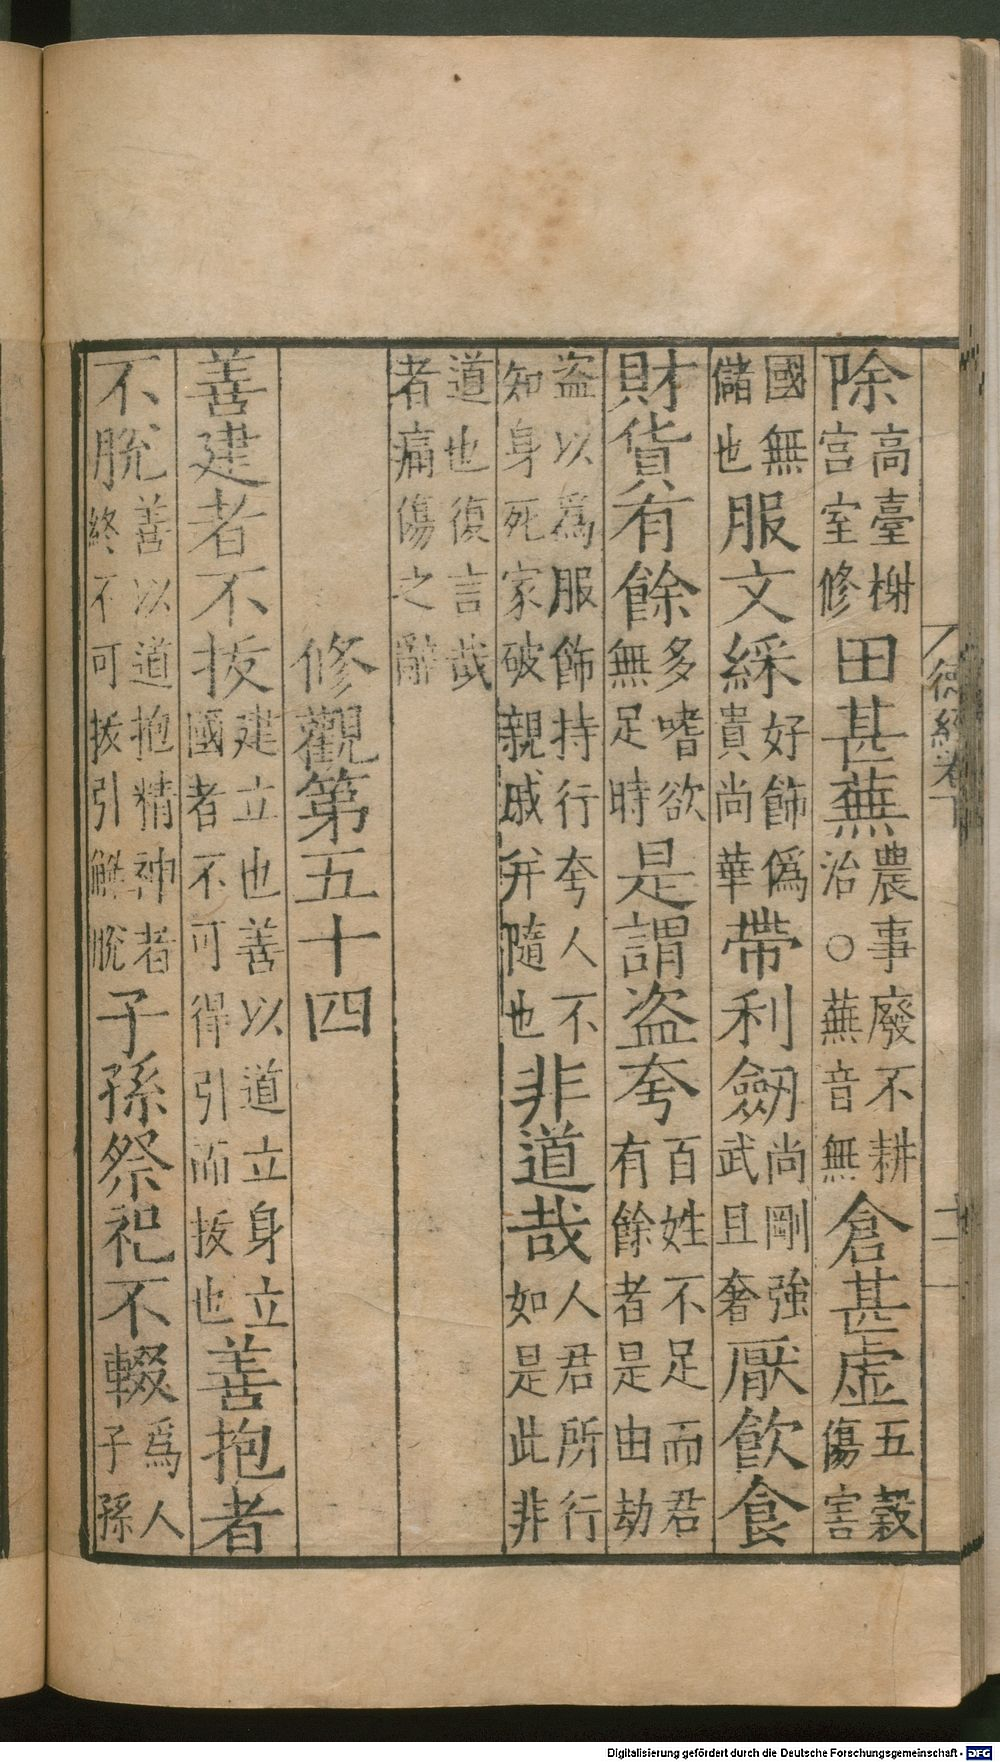 徳經卷下
二
除高臺榭宮室修田甚蕪農事廢不耕治○蕪音無倉甚虛五穀傷害
國無儲也服文綵好飾僞貴尚華帶利劒尚剛強武且奢厭飲食
財貨有餘多嗜欲無足時是謂盜夸百姓不足而君有餘者是由劫
盜以爲服飾持行夸人不知身死家破親戚并隨也非道哉人君所行如是此非
道也復言哉者痛傷之辭
修觀第五十四
善建者不拔建立也善以道立身立國者不可得引而拔也善抱者
不脫善以道抱精神者終不可拔引解脫子孫祭祀不輟爲人子孫
Digitalisierung gefördert durch die Deutsche Forschungsgemeinschaft - DFG